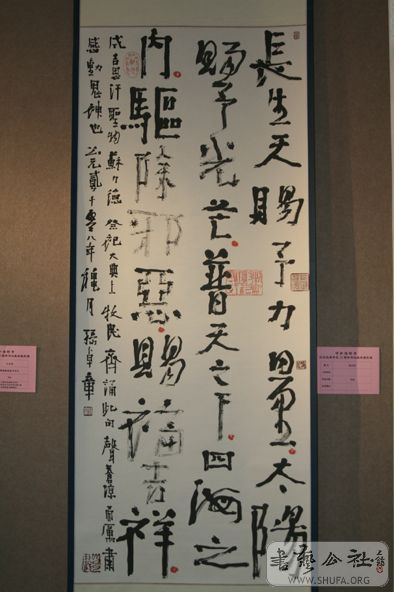 長生天賜予力量太陽
賜予光芒普天之下四海之
内驅除邪惡賜福吉祥
成吉思汗聖物蘇力德祭祀大典上牧民齊誦此聲蒼涼厲肅
感動鬼神也 公元貳千零八年穐月 孫卓章
書藝公社
WWW.SHUFA.ORG